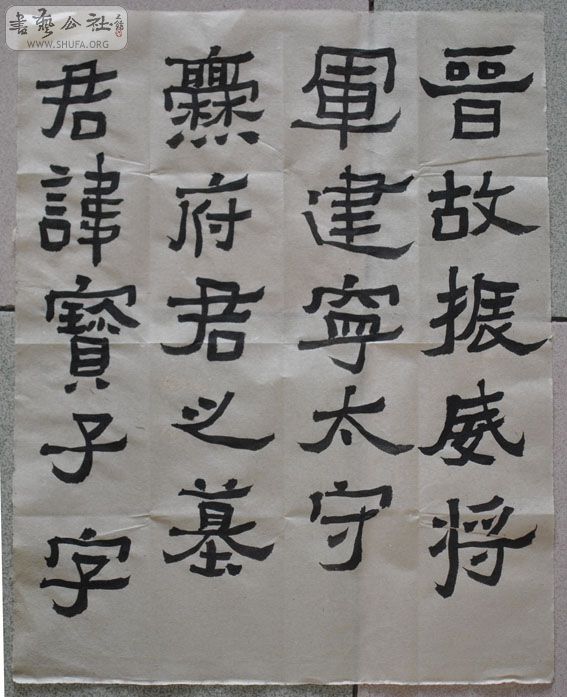 晉故振威将
軍建寧太守
爨府君之墓
君諱寶子字
書藝公社
WWW.SHUFA.ORG